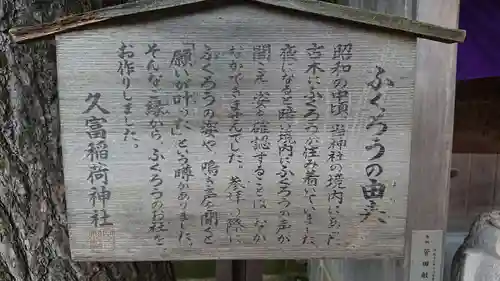 ふくろうの由来
昭和の中頃、当神社の境内にあった
古木にふくろうが住み着いていました。
夜になると暗い境内にふくろうの声が
聞こえ、姿を確認することは、なか
なかできませんでした。参拝の際に
ふくろうの姿や、鳴き声を聞くと
「願いが叶った」という噂がありました。
そんなご縁から、ふくろうのお社を
お作りしました。
久富稲荷神社